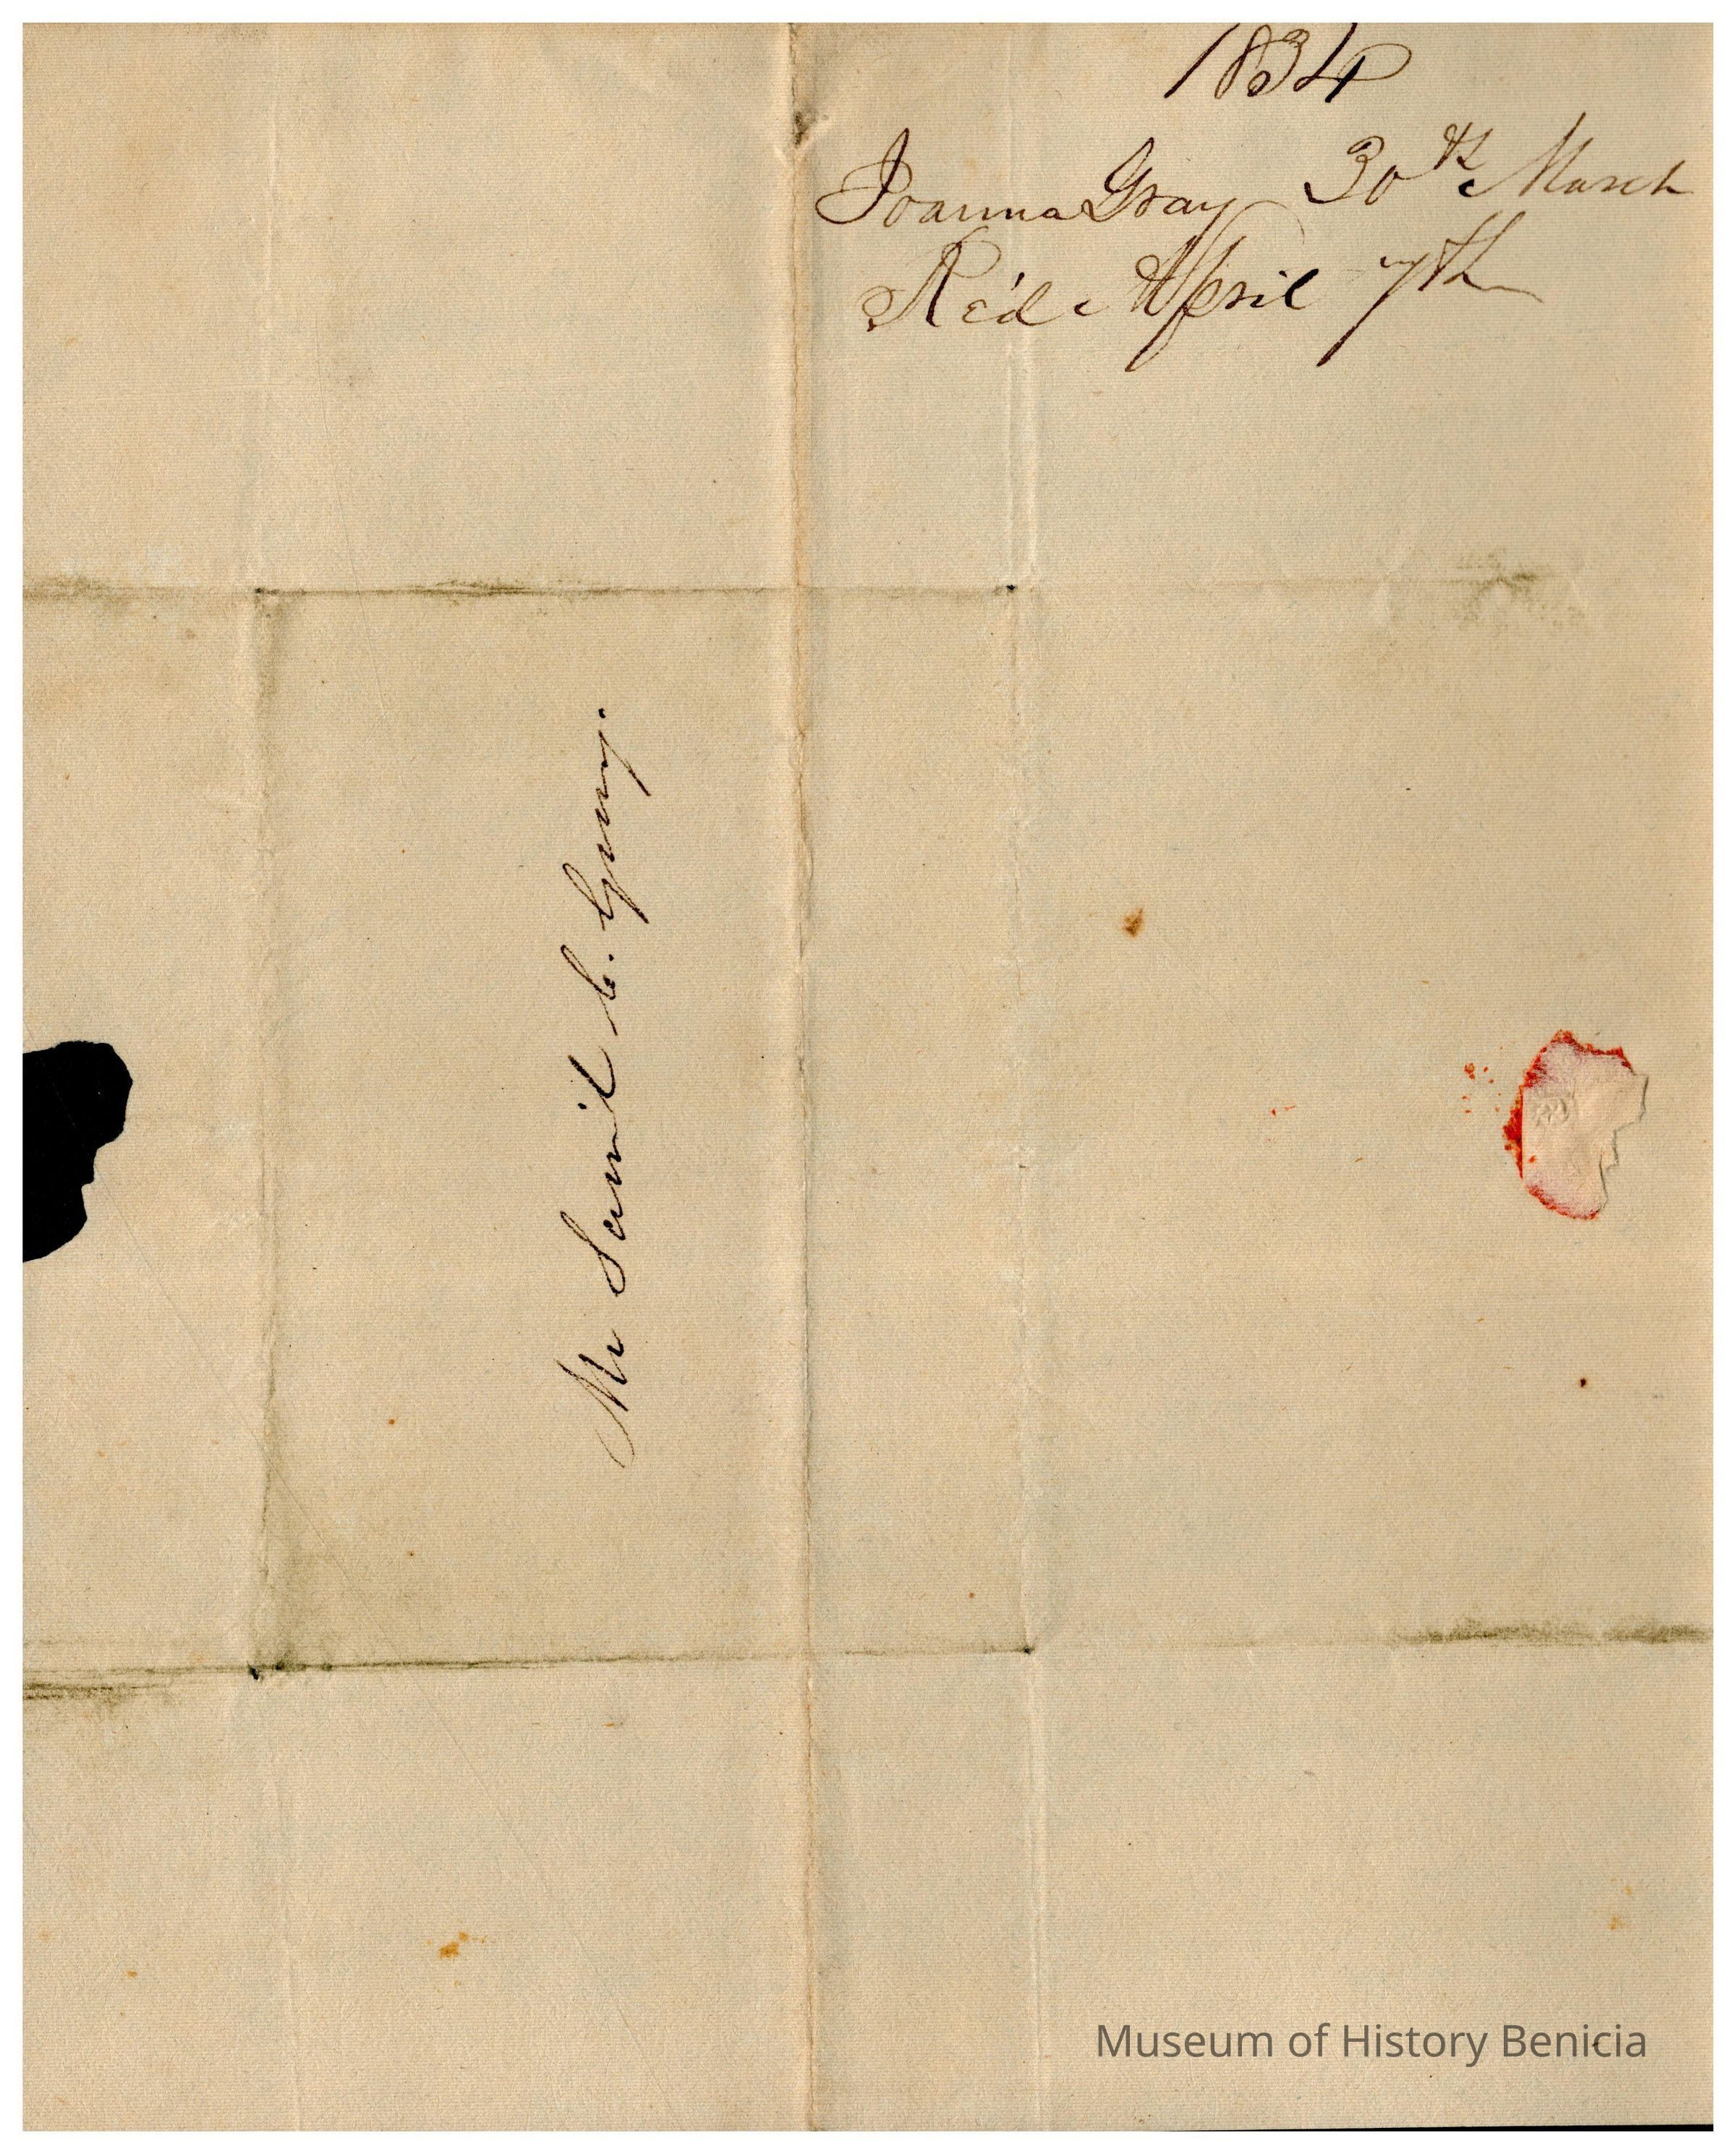 1834
Joanna Gray 30th March
Re'd April 7th
Mr Sam'l C. Gray.
Museum of History Benicia